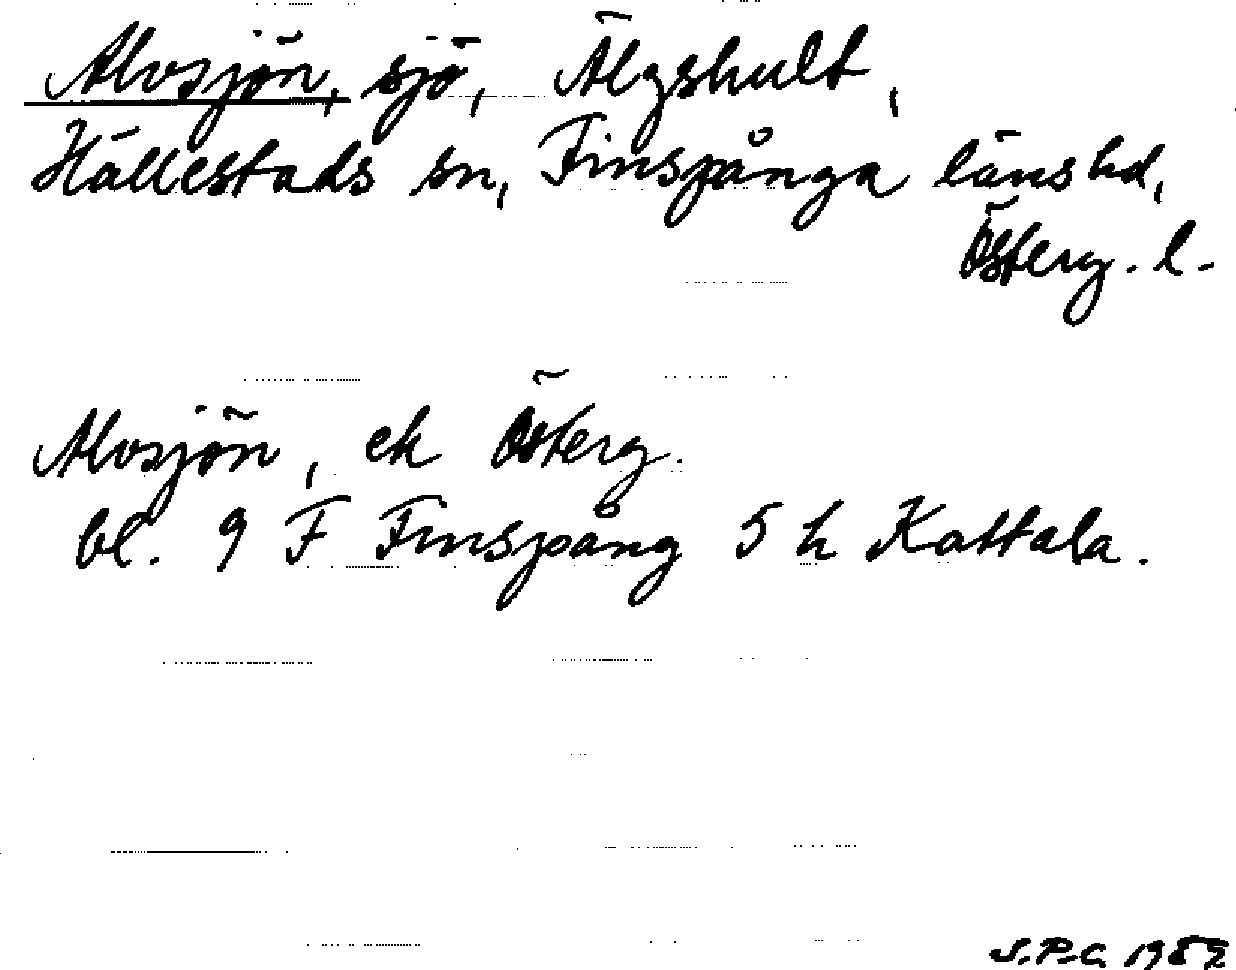 Alvsjön, sjö, Älgshult,
Hällestads sn, Finspånga läns hd,
Österg. l.
Alvsjön, ek Österg.
bl. 9 F Finspång 5 h Kattala.
S.P.C. 1982